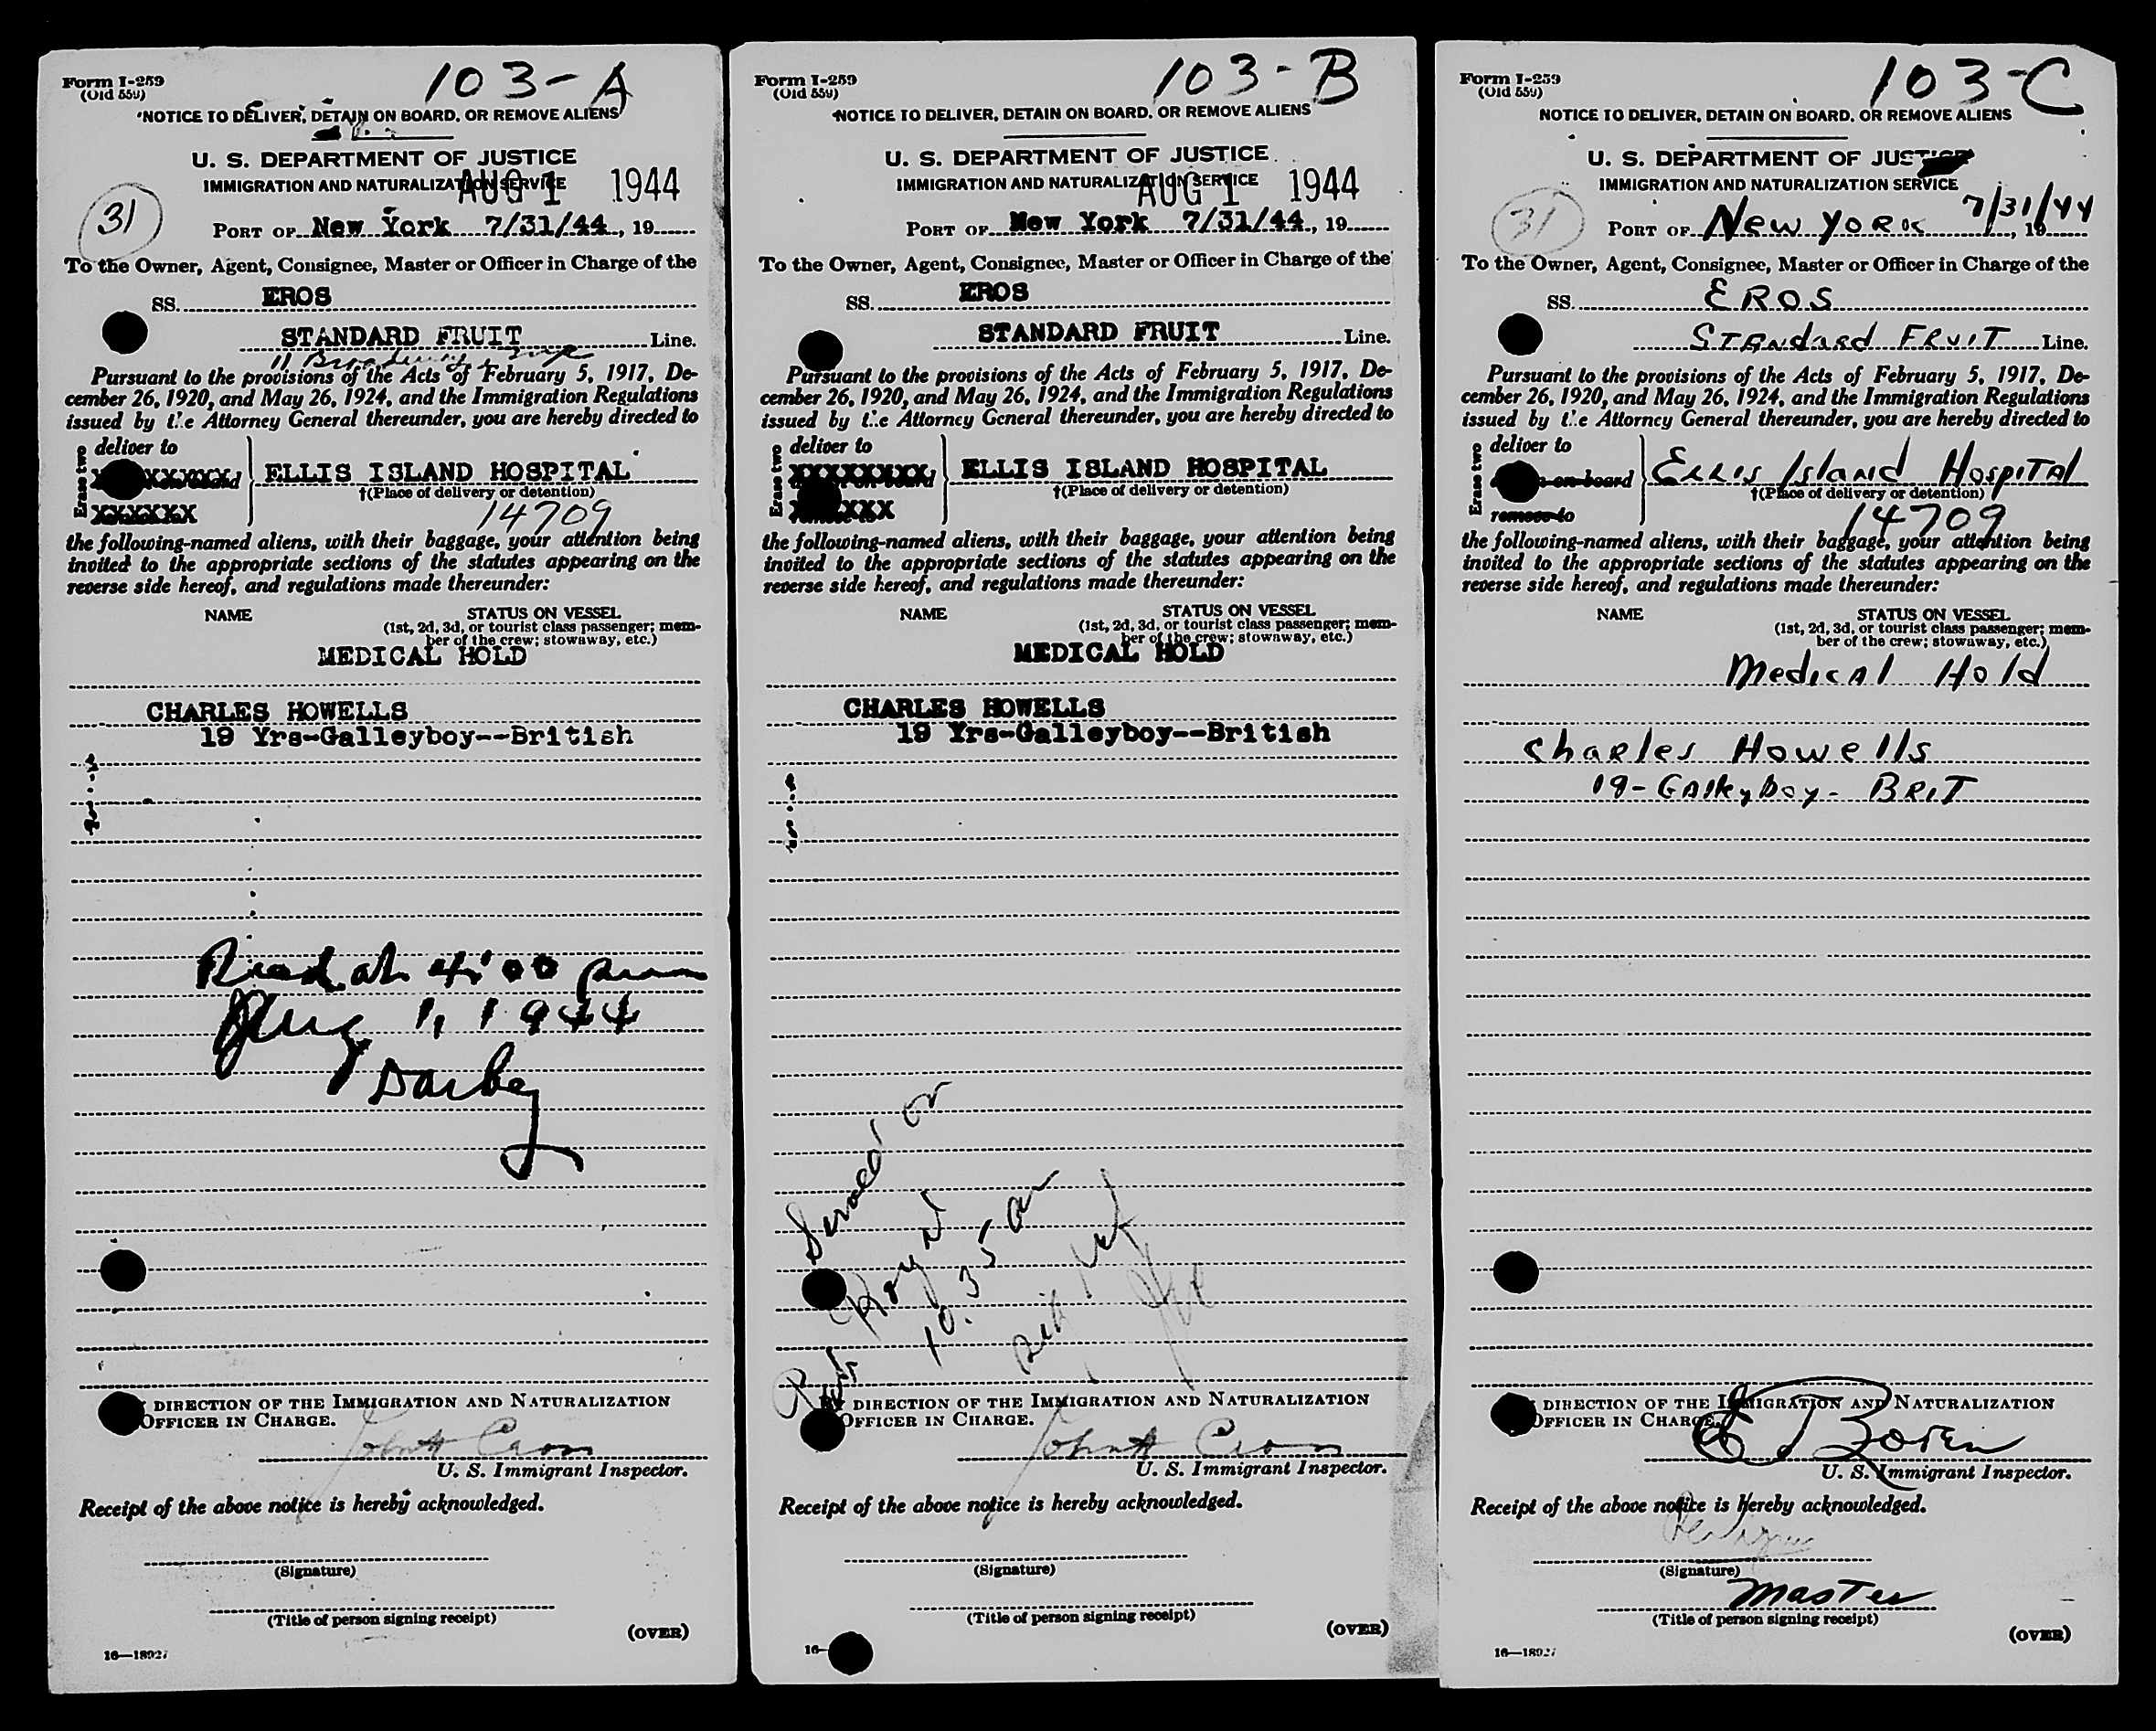 103-A
Form I-259
(Old 559)
NOTICE TO DELIVER, DETAIN ON BOARD, OR REMOVE ALIENS
U. S. DEPARTMENT OF JUSTICE
IMMIGRATION AND NATURALIZATION SERVICE
AUG 1 1944
31
PORT OF New York 7/31/44, 19
To the Owner, Agent, Consignee, Master or Officer in Charge of the
SS. EROS
STANDARD FRUIT Line.
11 Broadway
Pursuant to the provisions of the Acts of February 5, 1917, De-
cember 26, 1920, and May 26, 1924, and the Immigration Regulations
issued by the Attorney General thereunder, you are hereby directed to
Erase two
deliver to
ELLIS ISLAND HOSPITAL
†(Place of delivery or detention)
14709
the following-named aliens, with their baggage, your attention being
invited to the appropriate sections of the statutes appearing on the
reverse side hereof, and regulations made thereunder:
NAME STATUS ON VESSEL
(1st, 2d, 3d, or tourist class passenger; mem-
ber of the crew; stowaway, etc.)
MEDICAL HOLD
CHARLES HOWELLS
19 Yrs-Galleyboy--British
Recd at 4:00 pm
Aug 1, 1944
Darbey
DIRECTION OF THE IMMIGRATION AND NATURALIZATION
OFFICER IN CHARGE.
John A Cron
U. S. Immigrant Inspector.
Receipt of the above notice is hereby acknowledged.
(Signature)
(Title of person signing receipt)
(OVER)
16—18927
103-B
Form I-259
(Old 559)
NOTICE TO DELIVER, DETAIN ON BOARD, OR REMOVE ALIENS
U. S. DEPARTMENT OF JUSTICE
IMMIGRATION AND NATURALIZATION SERVICE
AUG 1 1944
PORT OF New York 7/31/44, 19
To the Owner, Agent, Consignee, Master or Officer in Charge of the
SS. EROS
STANDARD FRUIT Line.
Pursuant to the provisions of the Acts of February 5, 1917, De-
cember 26, 1920, and May 26, 1924, and the Immigration Regulations
issued by the Attorney General thereunder, you are hereby directed to
Erase two
deliver to
ELLIS ISLAND HOSPITAL
†(Place of delivery or detention)
the following-named aliens, with their baggage, your attention being
invited to the appropriate sections of the statutes appearing on the
reverse side hereof, and regulations made thereunder:
NAME STATUS ON VESSEL
(1st, 2d, 3d, or tourist class passenger; mem-
ber of the crew; stowaway, etc.)
MEDICAL HOLD
CHARLES HOWELLS
19 Yrs-Galleyboy--British
Served on
10.35 am
BY DIRECTION OF THE IMMIGRATION AND NATURALIZATION
OFFICER IN CHARGE.
John A Cron
U. S. Immigrant Inspector.
Receipt of the above notice is hereby acknowledged.
(Signature)
(Title of person signing receipt)
(OVER)
16—
103-C
Form I-259
(Old 559)
NOTICE TO DELIVER, DETAIN ON BOARD, OR REMOVE ALIENS
U. S. DEPARTMENT OF JUSTICE
IMMIGRATION AND NATURALIZATION SERVICE
31
PORT OF New York 7/31/44, 19
To the Owner, Agent, Consignee, Master or Officer in Charge of the
SS. EROS
Standard Fruit Line.
Pursuant to the provisions of the Acts of February 5, 1917, De-
cember 26, 1920, and May 26, 1924, and the Immigration Regulations
issued by the Attorney General thereunder, you are hereby directed to
Erase two
deliver to
on board
remove to
Ellis Island Hospital
†(Place of delivery or detention)
14709
the following-named aliens, with their baggage, your attention being
invited to the appropriate sections of the statutes appearing on the
reverse side hereof, and regulations made thereunder:
NAME STATUS ON VESSEL
(1st, 2d, 3d, or tourist class passenger; mem-
ber of the crew; stowaway, etc.)
Medical Hold
Charles Howells
19-Galleyboy-BRIT
DIRECTION OF THE IMMIGRATION AND NATURALIZATION
OFFICER IN CHARGE.
U. S. Immigrant Inspector.
Receipt of the above notice is hereby acknowledged.
(Signature)
Master
(Title of person signing receipt)
(OVER)
16—18927